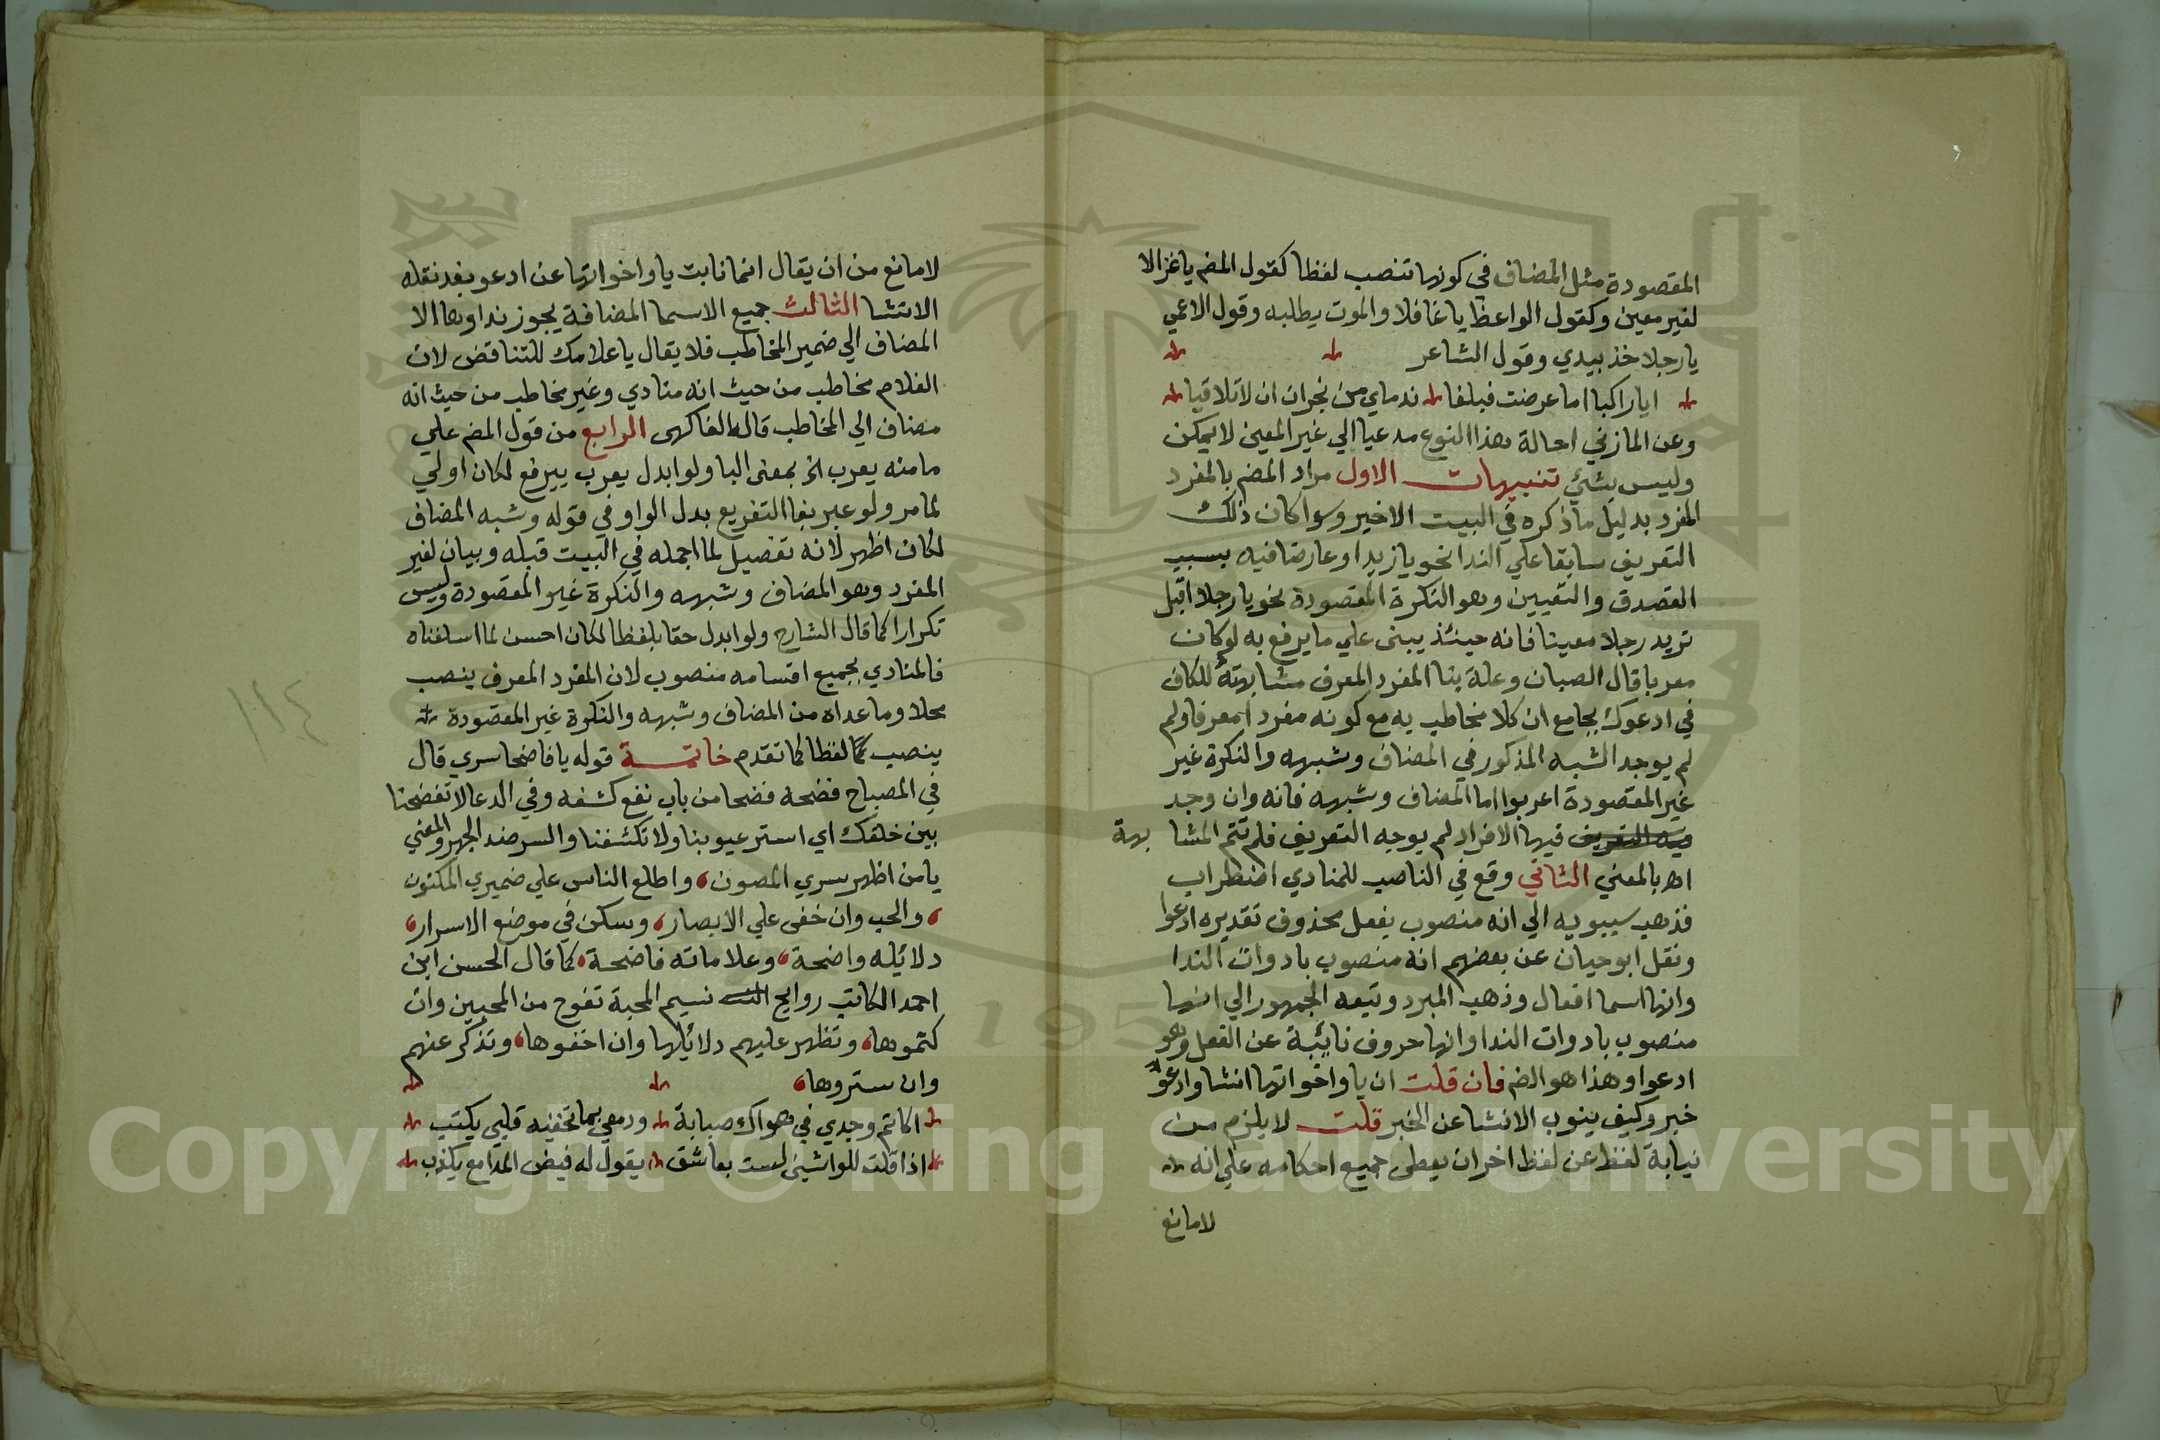 المقصودة مثل المضاف في كونها تنصب لفظا كقول المص ياغزالا
لغير معين وكقول الواعظ ياغافلا والموت يطلبه وقول الاعمي
يارجلا خذ بيدي وقول الشاعر
ايا راكبا اما عرضت فبلغا نداماي من نجران ان لا تلاقيا
وعن المازني احالة هذا النوع مدعيا الي غير المعين لا يمكن
وليس بشئ تنبيهات الاول مراد المص بالمفرد
المفرد بدليل ما ذكره في البيت الاخير وسوا كان ذلك
التعريف سابقا علي الندا نحو يازيد او عارضا فيه بسبب
القصد والتعيين وهو النكرة المقصودة نحو يارجلا اقبل
تريد رجلا معينا فانه حينئذ يبنى علي ما يرفع به لو كان
معربا قال الصبان وعلة بنا المفرد المعرف مشابهته للكاف
في ادعوك بجامع ان كلا مخاطب به مع كونه مفردا معرفا ولم
لم يوجد الشبه المذكور في المضاف وشبهه والنكرة غير
غير المقصودة اعربوا اما المضاف وشبهه فانه وان وجد
فيه التعريف فيها الافراد لم يوجد التعريف فلم تتم المشابهة
اه بالمعني الثاني وقع في الناصب للمنادي اضطراب
فذهب سيبويه الي انه منصوب بفعل محذوف تقديره ادعوا
ونقل ابو حيان عن بعضهم انه منصوب بادوات الندا
وانها اسما افعال وذهب المبرد وتبعه الجمهور الي انها
منصوب بادوات الندا وانها حروف نايبة عن الفعل وهو
ادعوا وهذا هو الص فان قلت ان يا واخواتها انشا وادعوا
خبر وكيف ينوب الانشا عن الخبر قلت لا يلزم من
نيابة لفظ عن لفظ اخر ان يعطى جميع احكامه علي انه
لا مانع
لا مانع من ان يقال انما نابت يا واخواتها عن ادعو بعد نقله
الانشا الثالث جميع الاسما المضافة يجوز نداوها الا
المضاف الي ضمير المخاطب فلا يقال ياغلامك للتناقض لان
الغلام مخاطب من حيث انه منادي وغير مخاطب من حيث انه
مضاف الي المخاطب قاله الفاكهى الرابع من قول المص علي
ما منه يعرب الخ بمعنى البا ولو ابدل يعرب بيرفع لكان اولي
لما مر ولو عبر بفا التفريع بدل الواو في قوله وشبه المضاف
لكان اظهر لانه تفصيل لما اجمله في البيت قبله وبيان لغير
المفرد وهو المضاف وشبهه والنكرة غير المقصودة وليس
تكرارا كما قال الشارح ولو ابدل حقا بلفظا لكان احسن لما اسلفناه
فالمنادي بجميع اقسامه منصوب لان المفرد المعرف ينصب
محلا وما عداه من المضاف وشبهه والنكرة غير المقصودة
ينصب لفظا كما تقدم خاتمة قوله يا فاضحا سري قال
في المصباح فضحه فضحا من باب نفع كشفه وفي الدعا لا تفضحنا
بين خلقك اي استر عيوبنا ولا تكشفنا والسر ضد الجهر والمعني
يا من اظهر سري المصون واطلع الناس علي ضميري المكنون
والحب وان خفى علي الابصار وسكن في موضع الاسرار
دلائله واضحة وعلاماته فاضحة كما قال الحسن ابن
احمد الكاتب روايح نسيم المحبة تفوح من المحبين وان
كتموها وتظهر عليهم دلائلها وان اخفوها وتذكر عنهم
وان ستروها
اكاتم وجدي في هواك صبابة ودمعي بما تخفيه قلبي يكتب
اذا قلت للواشين لست بعاشق يقول له فيض المدامع يكذب
١١٤
Copyright © King Saud University
1957